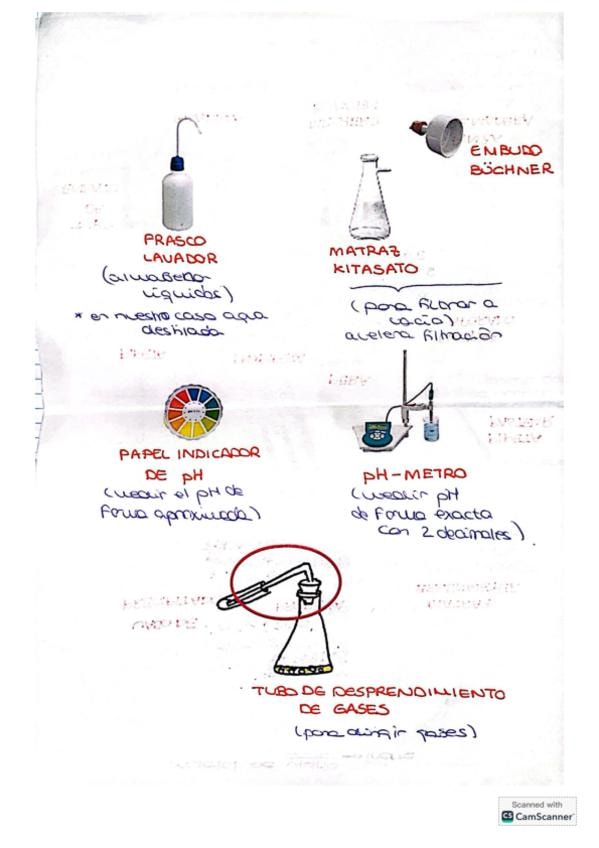 EMBUDO
BÜCHNER
FRASCO
LAVADOR
(almacenar
líquidos)
* en nuestro caso agua
destilada
MATRAZ
KITASATO
(para filtrar a
vacío)
acelera filtración
PAPEL INDICADOR
DE pH
(medir el pH de
forma aproximada)
pH-METRO
(medir pH
de forma exacta
con 2 decimales)
TUBO DE DESPRENDIMIENTO
DE GASES
(para dirigir gases)
Scanned with
CS CamScanner